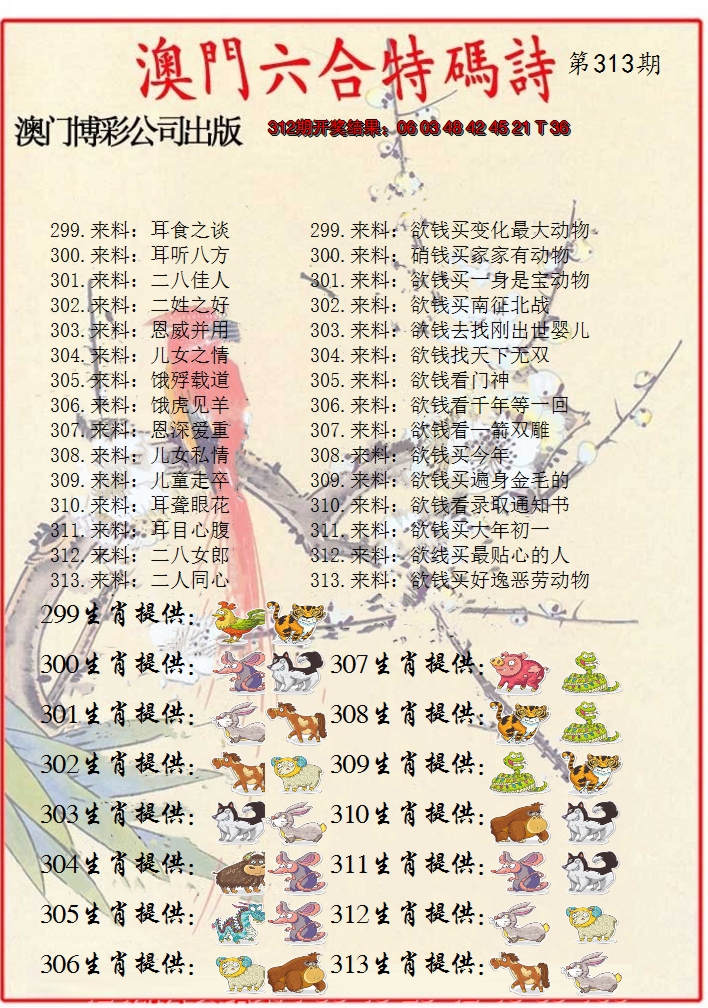 澳門六合特碼詩 第313期
澳门博彩公司出版 312期开奖结果：06 03 48 42 45 21 T 36
299.来料：耳食之谈 299.来料：欲钱买变化最大动物
300.来料：耳听八方 300.来料：硝钱买家家有动物
301.来料：二八佳人 301.来料：欲钱买一身是宝动物
302.来料：二姓之好 302.来料：欲钱买南征北战
303.来料：恩威并用 303.来料：欲钱去找刚出世婴儿
304.来料：儿女之情 304.来料：欲钱找天下无双
305.来料：饿殍载道 305.来料：欲钱看门神
306.来料：饿虎见羊 306.来料：欲钱看千年等一回
307.来料：恩深爱重 307.来料：欲钱看一箭双雕
308.来料：儿女私情 308.来料：欲钱买今年
309.来料：儿童走卒 309.来料：欲钱买遍身金毛的
310.来料：耳聋眼花 310.来料：欲钱看录取通知书
311.来料：耳目心腹 311.来料：欲钱买大年初一
312.来料：二八女郎 312.来料：欲线买最贴心的人
313.来料：二人同心 313.来料：欲钱买好逸恶劳动物
299生肖提供：
300生肖提供： 307生肖提供：
301生肖提供： 308生肖提供：
302生肖提供： 309生肖提供：
303生肖提供： 310生肖提供：
304生肖提供： 311生肖提供：
305生肖提供： 312生肖提供：
306生肖提供： 313生肖提供：